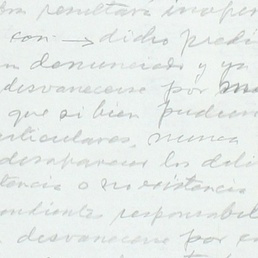 resultará inoper
con → dicho predi
denunciado y ya
desvanecerse por
que si bien pudiera
articulares, nunca
desaparecer los deli
tencia o no existencia
pondiente responsabil
desvanecerse por